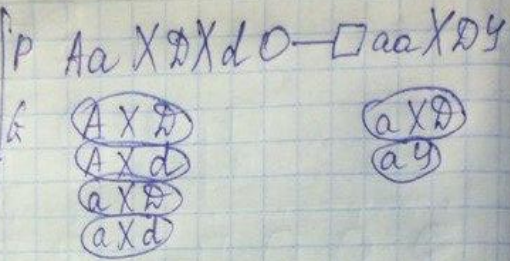 P Aa XDXd O—□ aa XDY
G AXD aXD
AXd aY
aXD
aXd